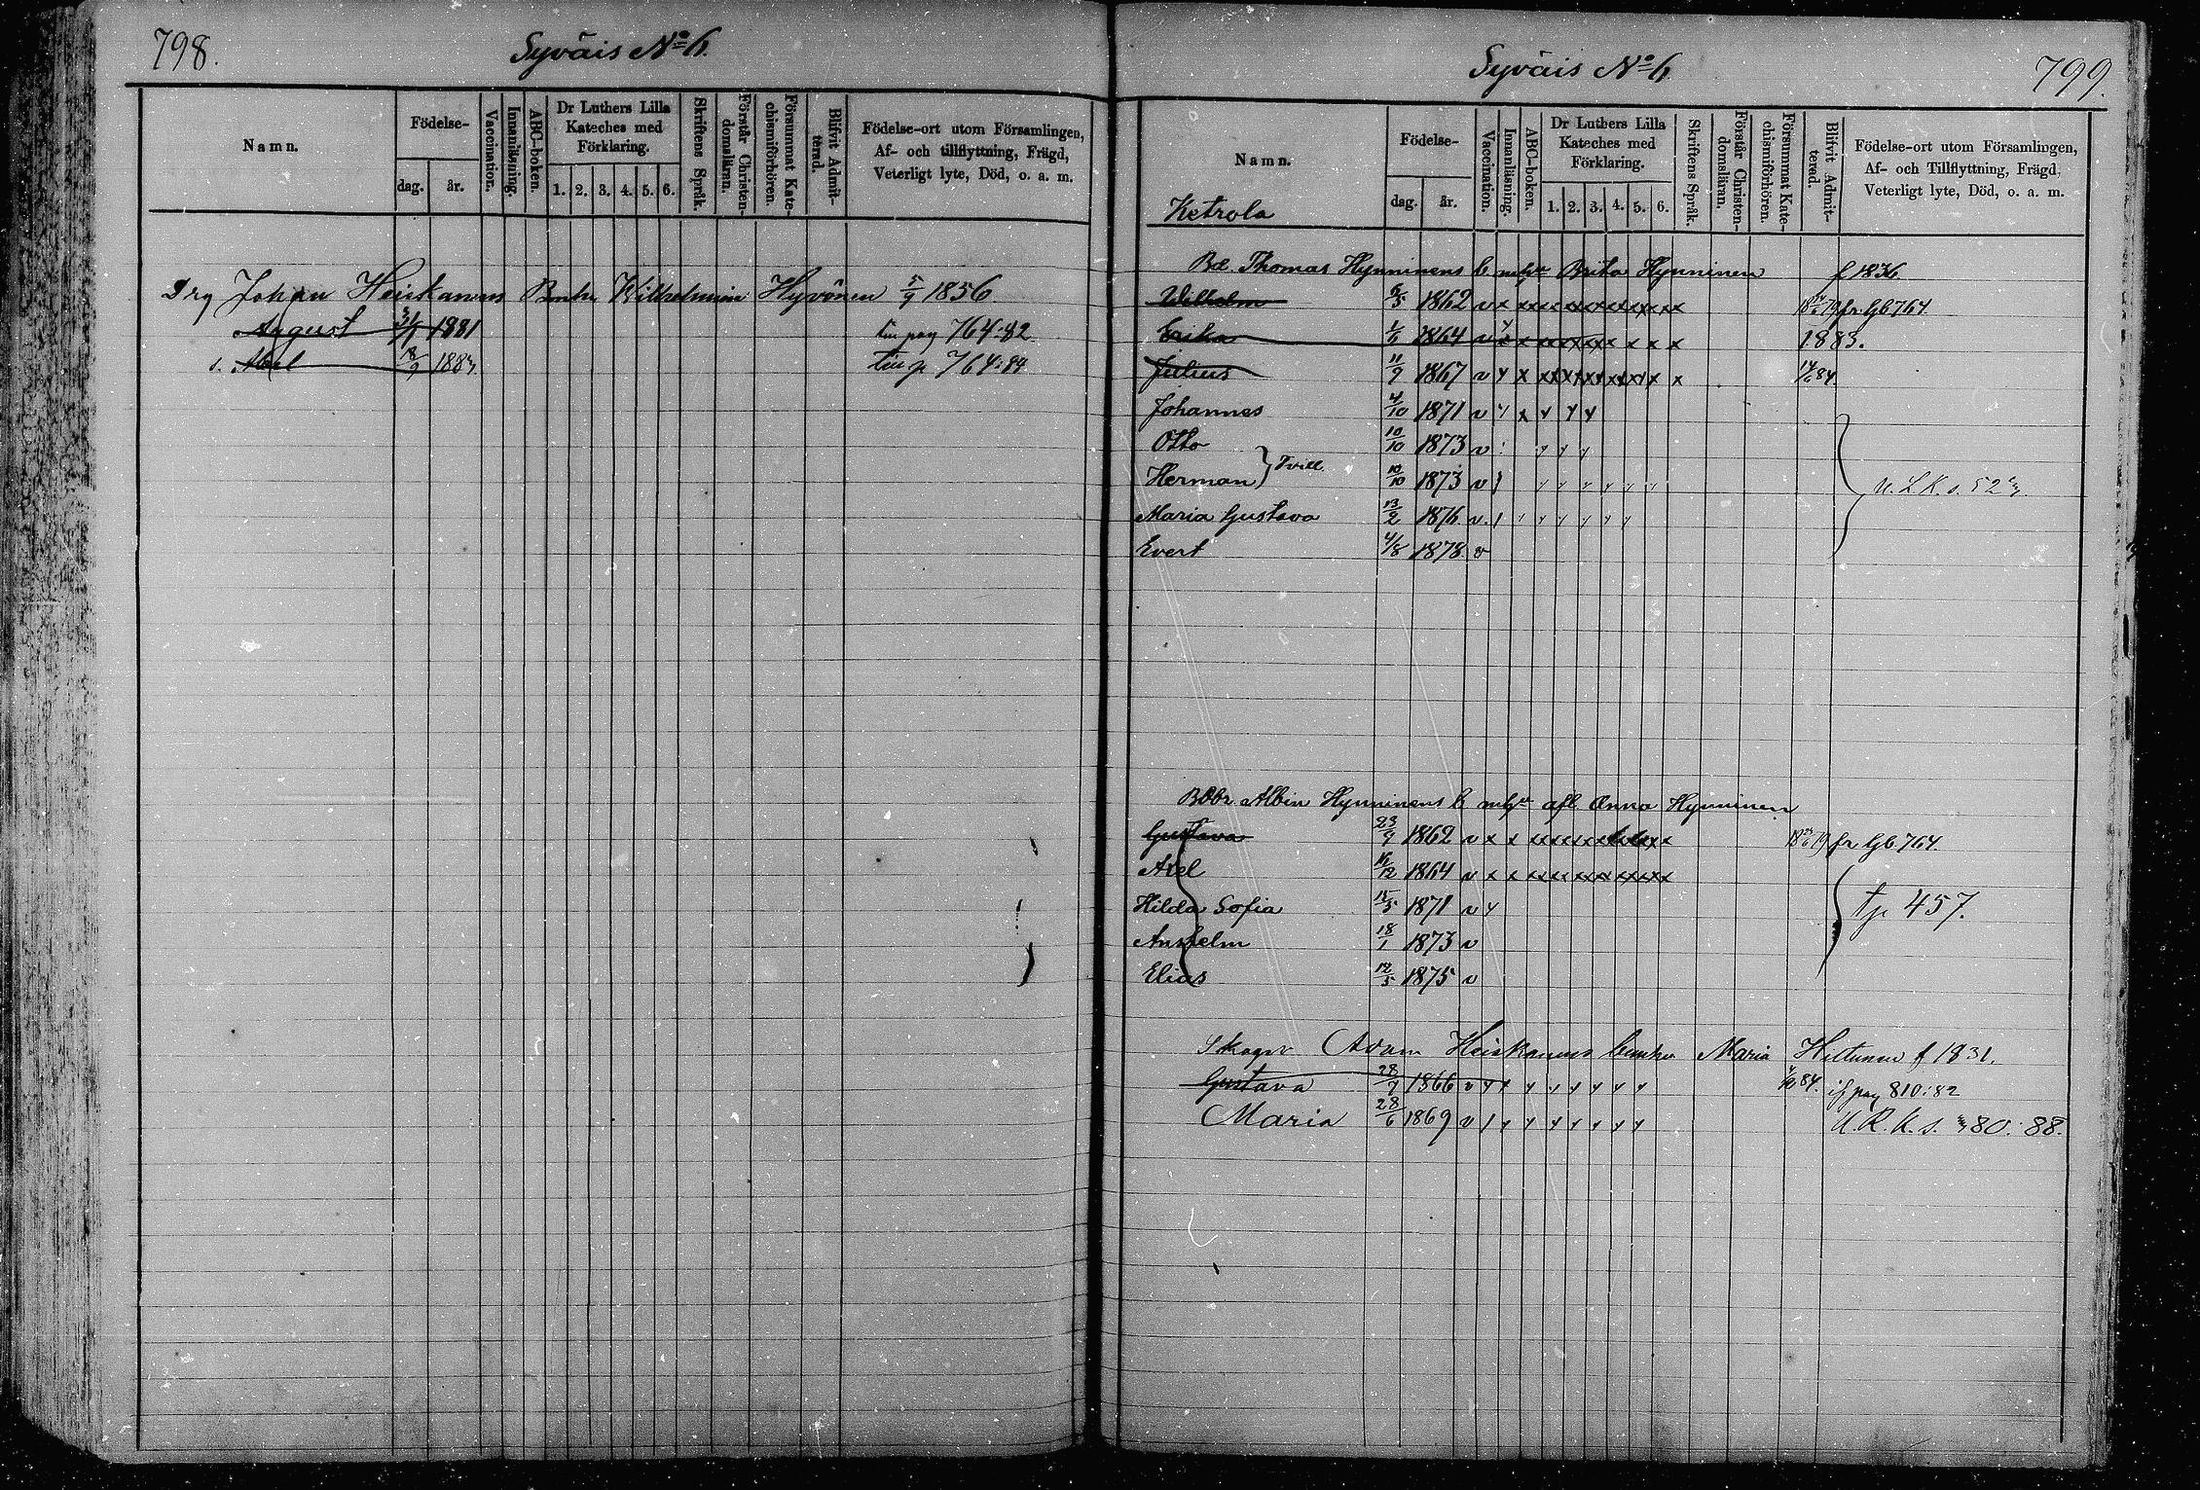 798.
Syväis No 6.
Namn.
Födelse-
dag.
år.
Vaccination.
Innanläsning.
ABC-boken.
Dr Luthers Lilla Kateches med Förklaring.
1. 2. 3. 4. 5. 6.
Skriftens Språk.
Förstår Christendomsläran.
Försummat Katechismiförhören.
Blifvit Admitterad.
Födelse-ort utom Församlingen, Af- och tillflyttning, Frägd, Veterligt lyte, Död, o. a. m.
Drg Johan Heiskanens Wilhelmina Hyvönen 5/9 1856
August 1881 764:82
s. Abel 18/9 1884 764:84
Syväis No 6
799.
Namn.
Födelse-
dag.
år.
Vaccination.
Innanläsning.
ABC-boken.
Dr Luthers Lilla Kateches med Förklaring.
1. 2. 3. 4. 5. 6.
Skriftens Språk.
Förstår Christendomsläran.
Försummat Katechismiförhören.
Blifvit Admitterad.
Födelse-ort utom Församlingen, Af- och Tillflyttning, Frägd, Veterligt lyte, Död, o. a. m.
Ketrola
Bd. Thomas Hynninens Brita Hynninen f 1836
Wilhelm 6/5 1862 v x x x x x x x x x fr. Gb 764.
Erika 1/6 1864 v x x x x x x x x 1883.
Julius 11/9 1867 v x x x x x x x x 84.
Johannes 4/10 1871 v
Otto 10/10 1873 v
Herman } Tvill. 10/10 1873 v
Maria Gustava 13/2 1876 v
Evert 4/8 1878 v
Albin Hynninens afl. Anna Hynninen
Gustava 23/9 1862 v x x x x x x x x fr Gb. 764.
Axel 16/12 1864 v x x x x x x x x
Hilda Sofia 15/5 1871 v
tp 457.
Anshelm 18/1 1873 v
Elias 12/5 1875 v
Adam Heiskanens Maria Hiltunen f 1831.
Gustava 28/7 1866 v 84. if pag 810:82
Maria 28/6 1869 v U. R. K. s. 80:88.